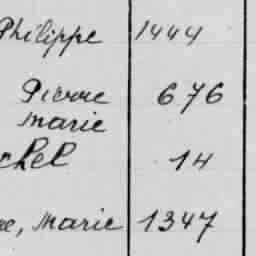 Philippe 1444
Pierre 676
Marie
chel 14
Marie 1347